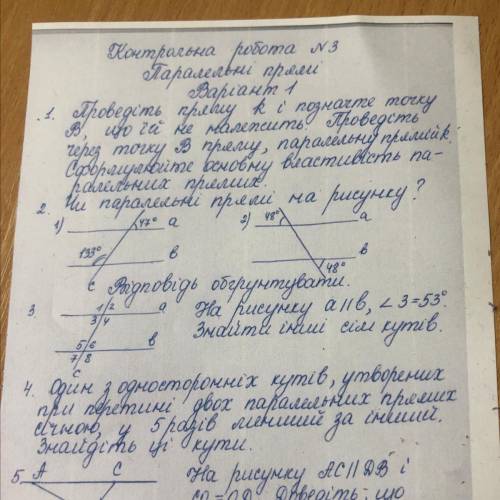 Контрольна робота №3
Паралельні прямі
Варіант 1
1. Проведіть пряму k і позначте точку
B, що їй не належить. Проведіть
через точку B пряму, паралельну прямій k.
Сформулюйте основну властивість па-
ралельних прямих.
2. Чи паралельні прямі на рисунку?
1) 47° a 2) 48° a
133° b b
c 48°
Відповідь обґрунтувати.
3. 1 2 a На рисунку a || b, ∠3=53°.
3 4 Знайти інші сім кутів.
5 6 b
7 8
c
4. Один з односторонніх кутів, утворених
при перетині двох паралельних прямих
січною, у 5 разів менший за інший.
Знайдіть ці кути.
5. A C На рисунку AC || DB і
CO = OD. Доведіть, що